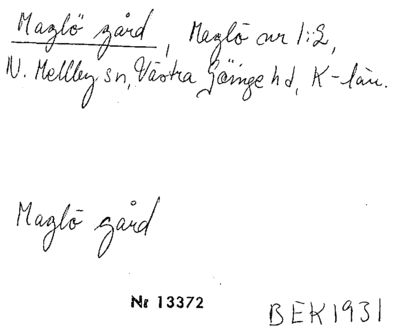 Maglö gård, Maglö nr 1:2,
N. Mellby sn, Västra Göinge hd, K-län.
Maglö gård
Nr 13372
BEK1931